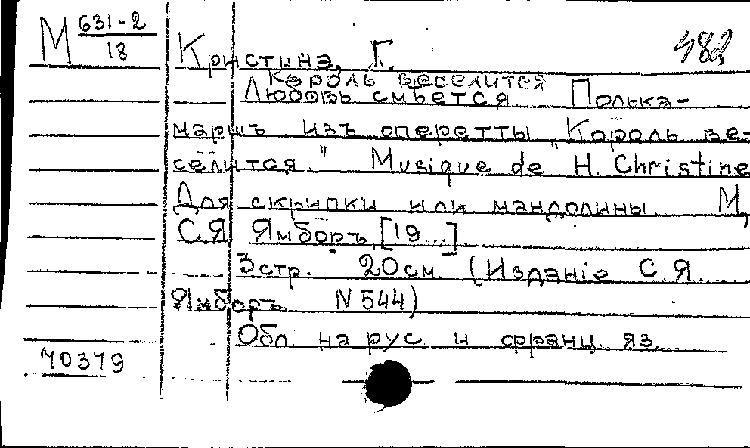 М 631-2
18
Кристинэ, Г.
Король веселится
Любовь смеется Полька-
маршъ изъ оперетты „Король ве-
селится." Musique de H. Christine
Для скрипки или мандолины М,
С.Я. Ямборъ, [19...]
3 стр. 20 см (Изданiе С.Я.
Ямборъ N 544)
Обл. на рус. и франц. яз.
70379